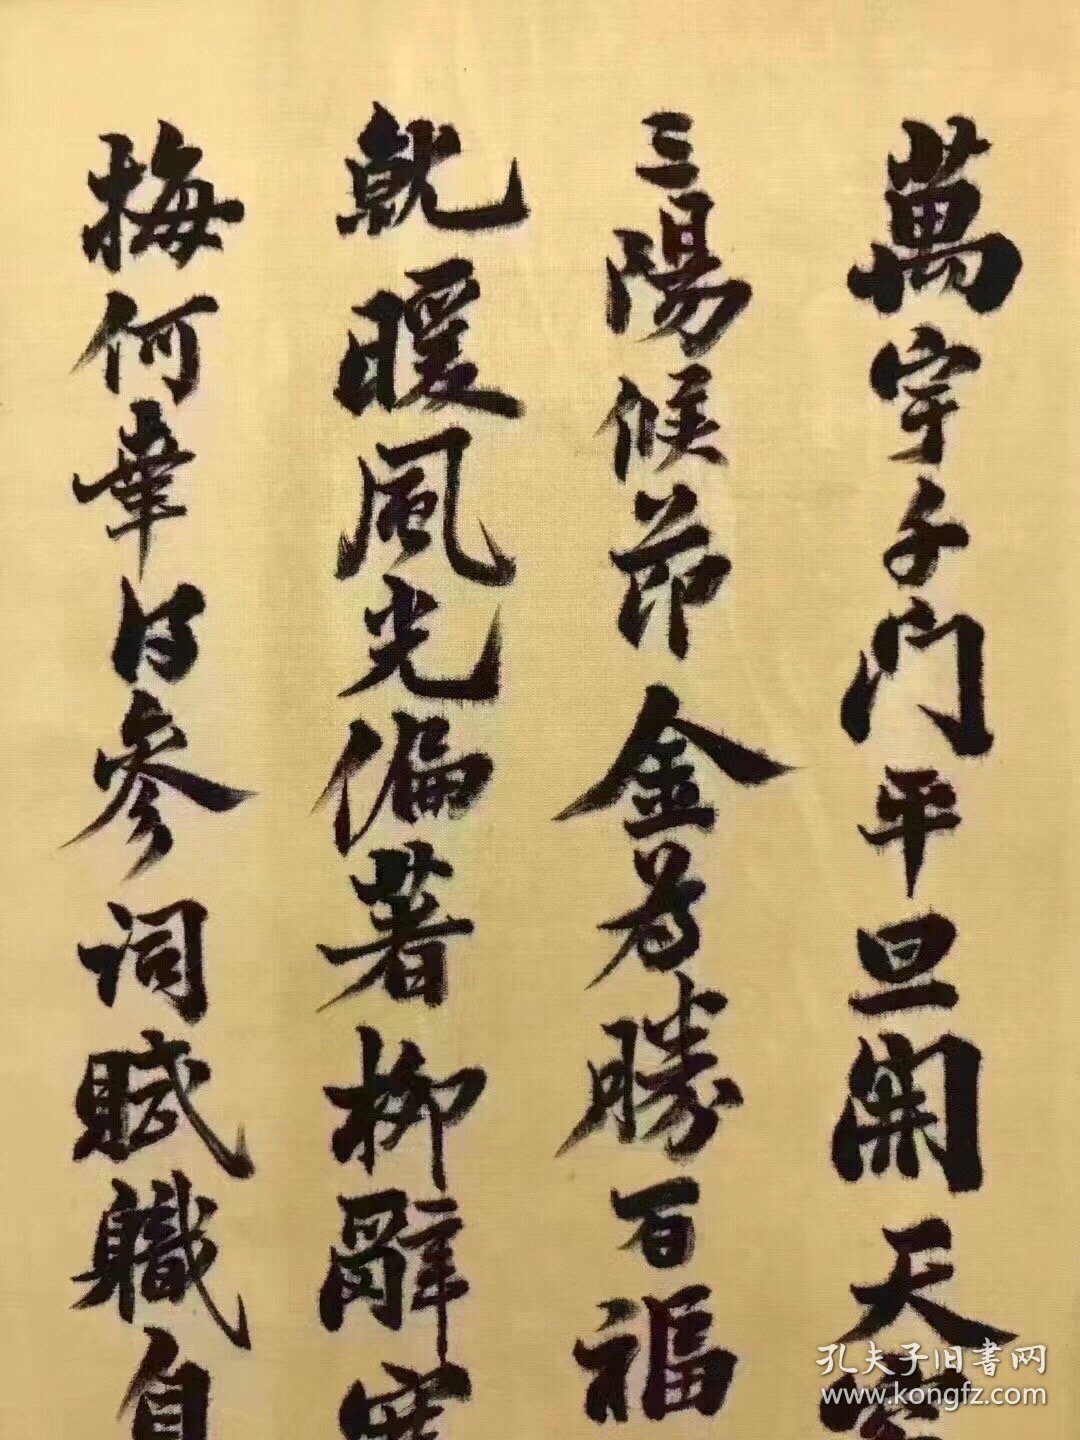 萬宇千門平旦開天容
三陽候節金為勝百福
就暖風光偏著柳辭寒
梅何幸得參詞賦職自
孔夫子旧書网
www.kongfz.com